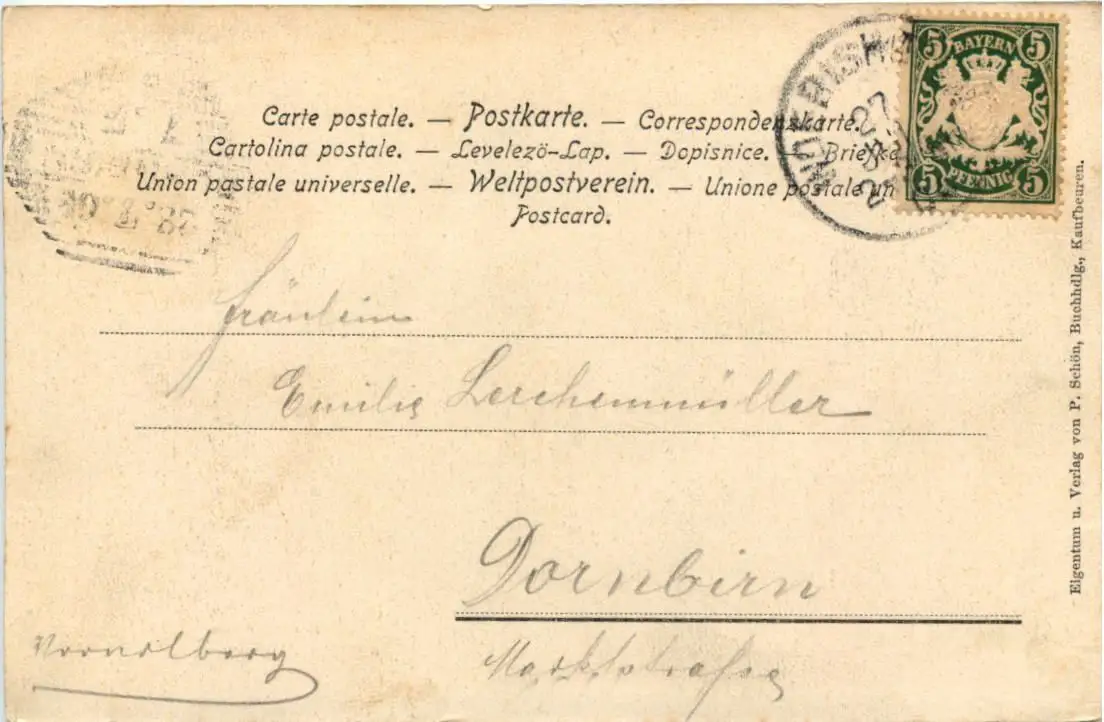 Carte postale. — Postkarte. — Correspondenzkarte.
Cartolina postale. — Levelezö-Lap. — Dopisnice. — Briefka
Union postale universelle. — Weltpostverein. — Unione postale un
Postcard.
5 BAYERN 5
5 PFENNIG 5
WOERISH
27
Fräulein
Emilie Lerchenmüller
Dornbirn
Marktstraße
Vorarlberg
Eigentum u. Verlag von P. Schön, Buchhdlg., Kaufbeuren.